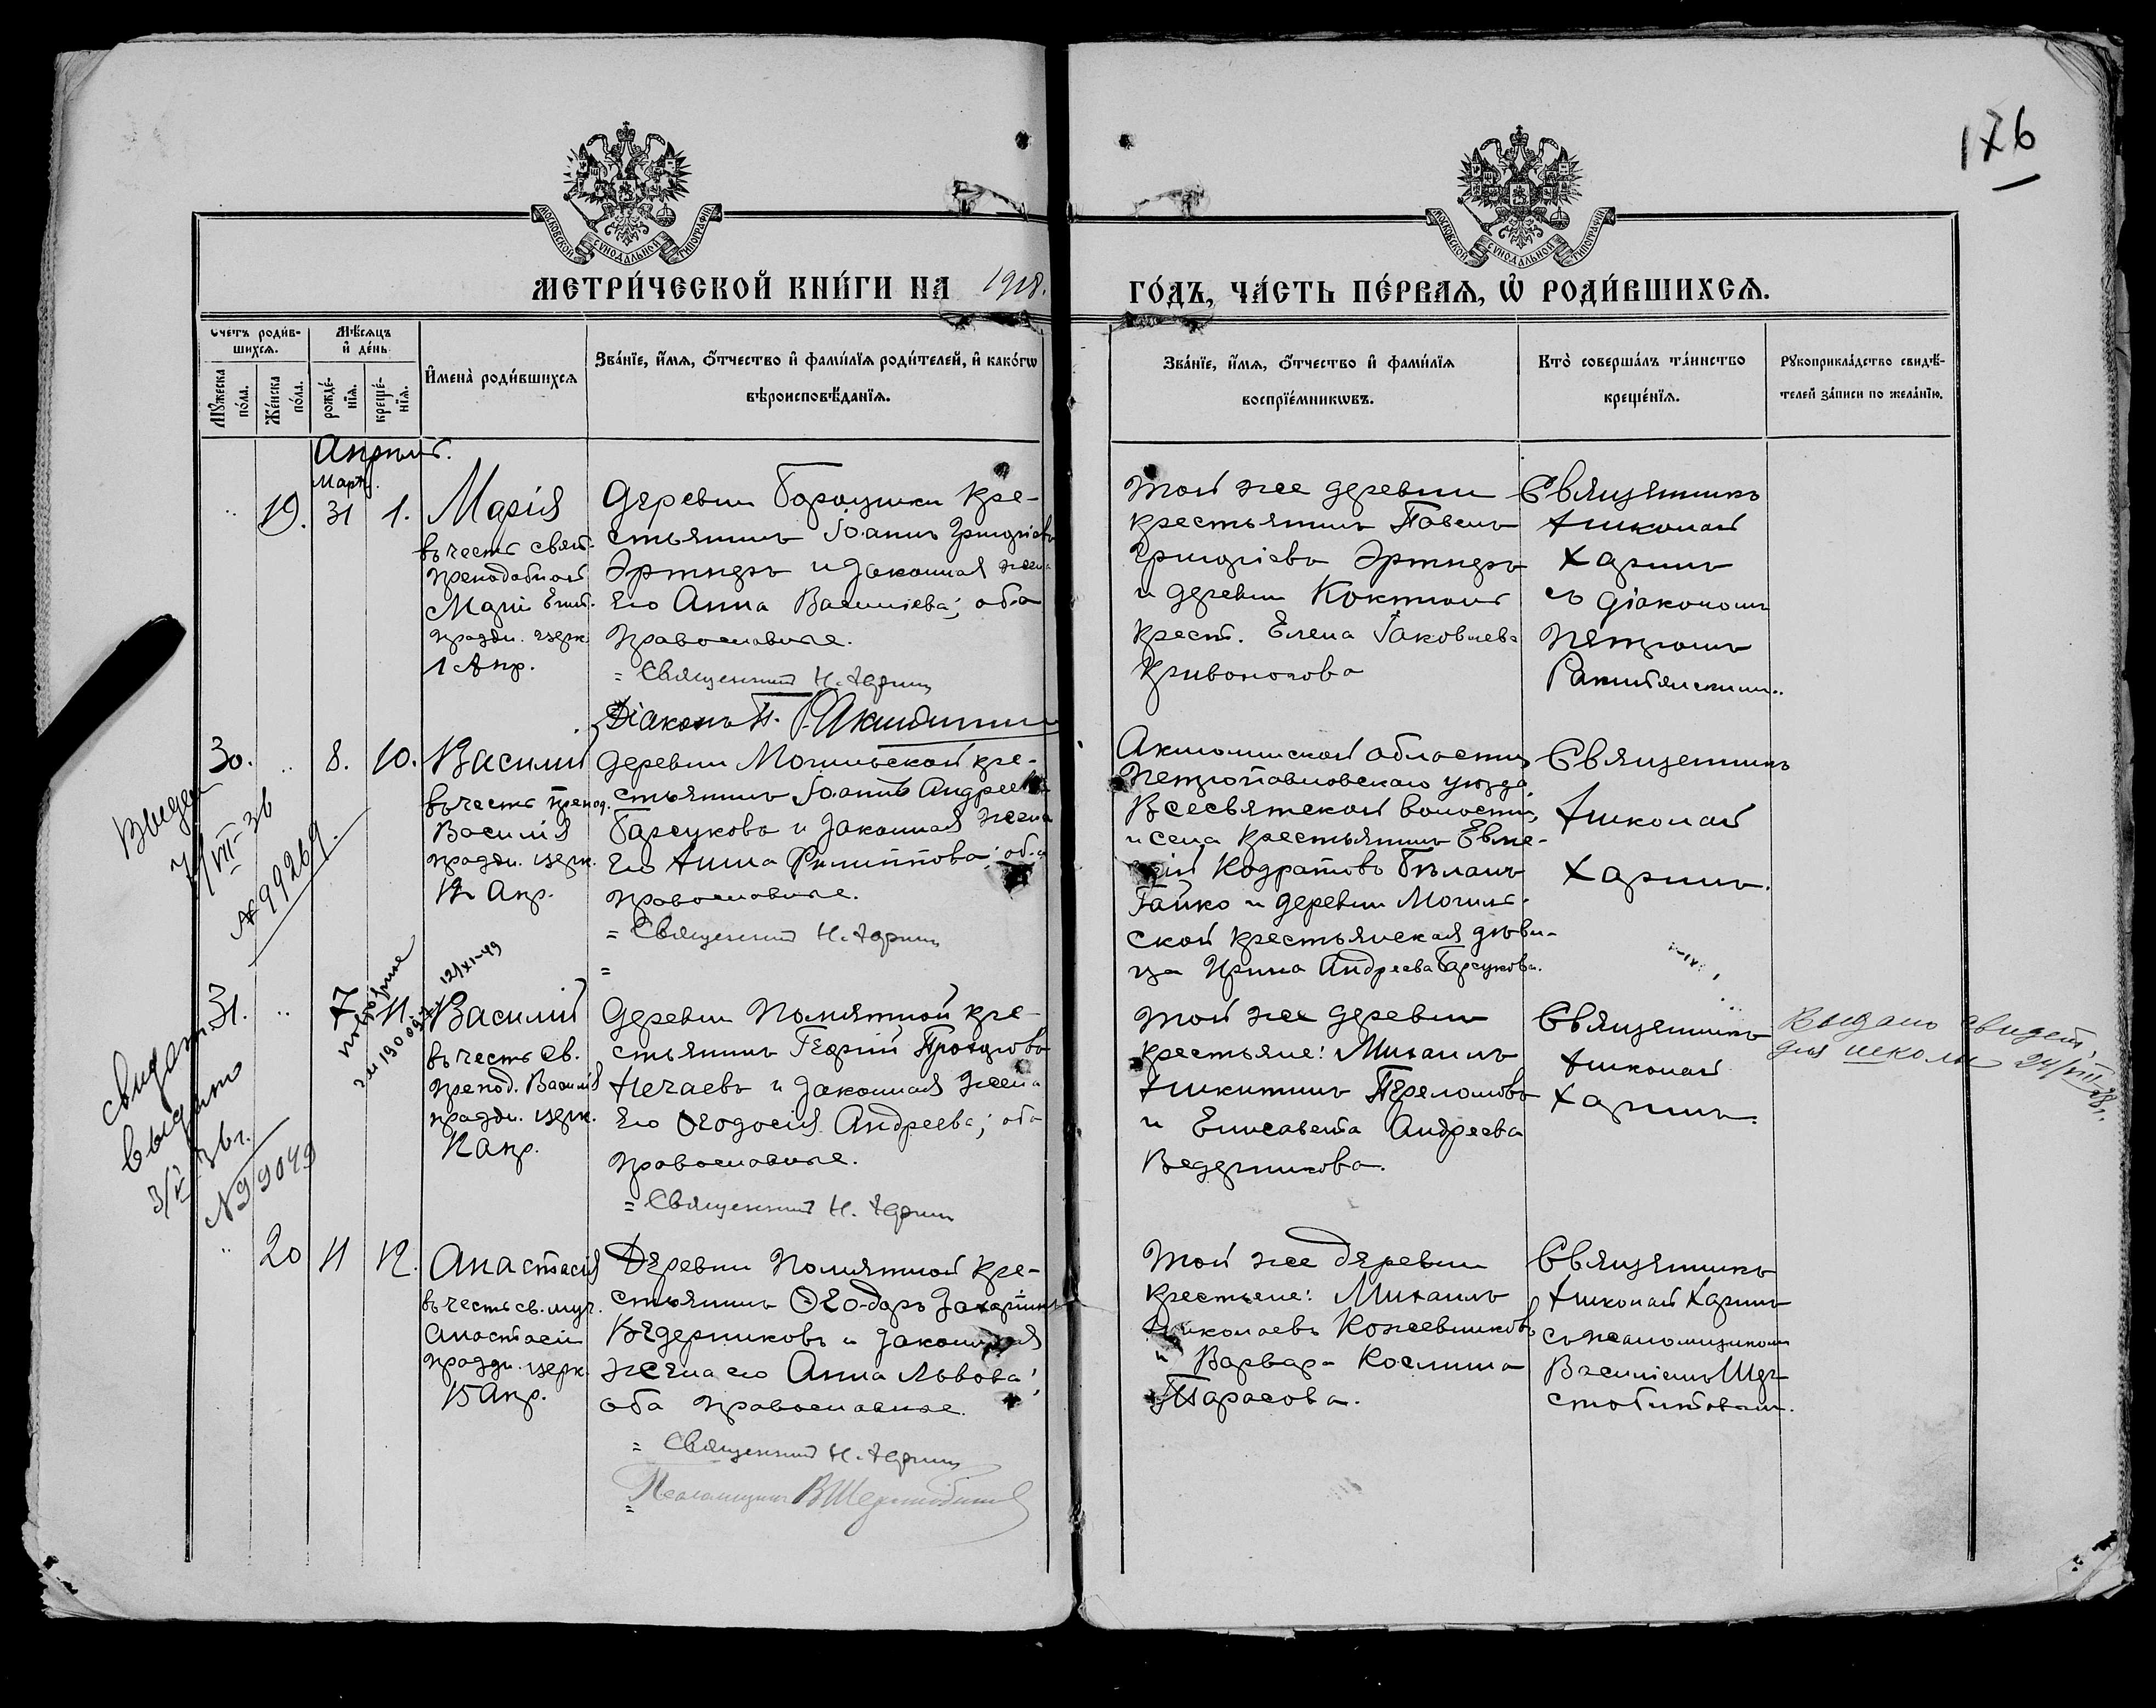 176
МОСКОВСКОЙ СУНОДАЛЬНОЙ ТИПОГРАФІИ
МОСКОВСКОЙ СУНОДАЛЬНОЙ ТИПОГРАФІИ
МЕТРИ́ЧЕСКОЙ КНИ́ГИ НА 1918.
ГО́ДЪ, ЧА́СТЬ ПЕ́РВАЯ, Ѡ҆ РОДИ́ВШИХСЯ.
Счетъ роди́в-
шихся.
Мꙋ́жеска
по́ла.
Же́нска
по́ла.
Мѣ́сяцъ
и҆ де́нь
рожде́-
нїя.
креще́-
нїя.
И҆мена̀ роди́вшихся
Зва́нїе, и҆́мя, ѻ҆́тчество и҆ фами́лїя роди́телей, и҆ како́гѡ
вѣроисповѣ́данїя.
Зва́нїе, и҆́мя, ѻ҆́тчество и҆ фами́лїя
воспрїе́мникѡвъ.
Кто̀ соверша́лъ та́инство
креще́нїя.
Рꙋкоприкла́дство свидѣ́-
телей за́писи по жела́нїю.
Апрѣль.
Мартъ.
19. 31 1.
Марія
въ честь свят.
преподобной
Маріи Егип.
праздн. церк.
1 Апр.
Деревни Барсушки кре-
стьянинъ Іоаннъ Григоріевъ
и законная жена
его Анна Васильева; оба
православные.
= Священникъ Н. Харинъ
Діаконъ П.
Той же деревни
крестьянинъ Павелъ
Григоріевъ
и деревни
крест. Елена Іаковлева
Кривоногова
Священникъ
Николай
Харинъ
съ діакономъ
Петромъ
30. 8. 10.
Василій
въ честь препод.
Василія
праздн. церк.
12 Апр.
Деревни Могильской кре-
стьянинъ Іоаннъ Андреевъ
Барсуковъ и законная жена
его Анна Филиппова; оба
православные.
= Священникъ Н. Харинъ
=
Акмолинской области,
Петропавловскаго уѣзда,
Всесвятской волости,
и села крестьянинъ
Кодратовъ
Гайко и деревни Могиль-
ской крестьянская дѣви-
ца Ирина Андреева Барсукова.
Священникъ
Николай
Харинъ.
7/VII-36
№ 99269.
повторное
12/XI-49
31. 7 11.
Василій
въ честь св.
препод. Василія
праздн. церк.
12 Апр.
Деревни Полятной кре-
стьянинъ Георгій Прохоровъ
Нечаевъ и законная жена
его Ѳеодосія Андреева; оба
православные.
= Священникъ Н. Харинъ
Той же деревни
крестьяне: Михаилъ
Никитинъ Переломовъ
и Елисавета Андреева
Ведерникова.
Священникъ
Николай
Харинъ.
Выдано свидет.
для школы 24/VIII 28 г.
свидет.
выдано
36 г.
№ 99049
20 11 12.
Анастасія
въ честь св. муч.
Анастасіи
праздн. церк.
15 Апр.
Деревни Полятной кре-
стьянинъ Ѳеодоръ Захаріинъ
Ведерниковъ и законная
жена его Анна Львова;
оба православные.
= Священникъ Н. Харинъ
Псаломщикъ В. Шерстобитовъ
=
Той же деревни
крестьяне: Михаилъ
Николаевъ Кожевниковъ
и Варвара Космина
Тарасова.
Священникъ
Николай Харинъ
съ псаломщикомъ
Василіемъ Шер-
стобитовымъ.